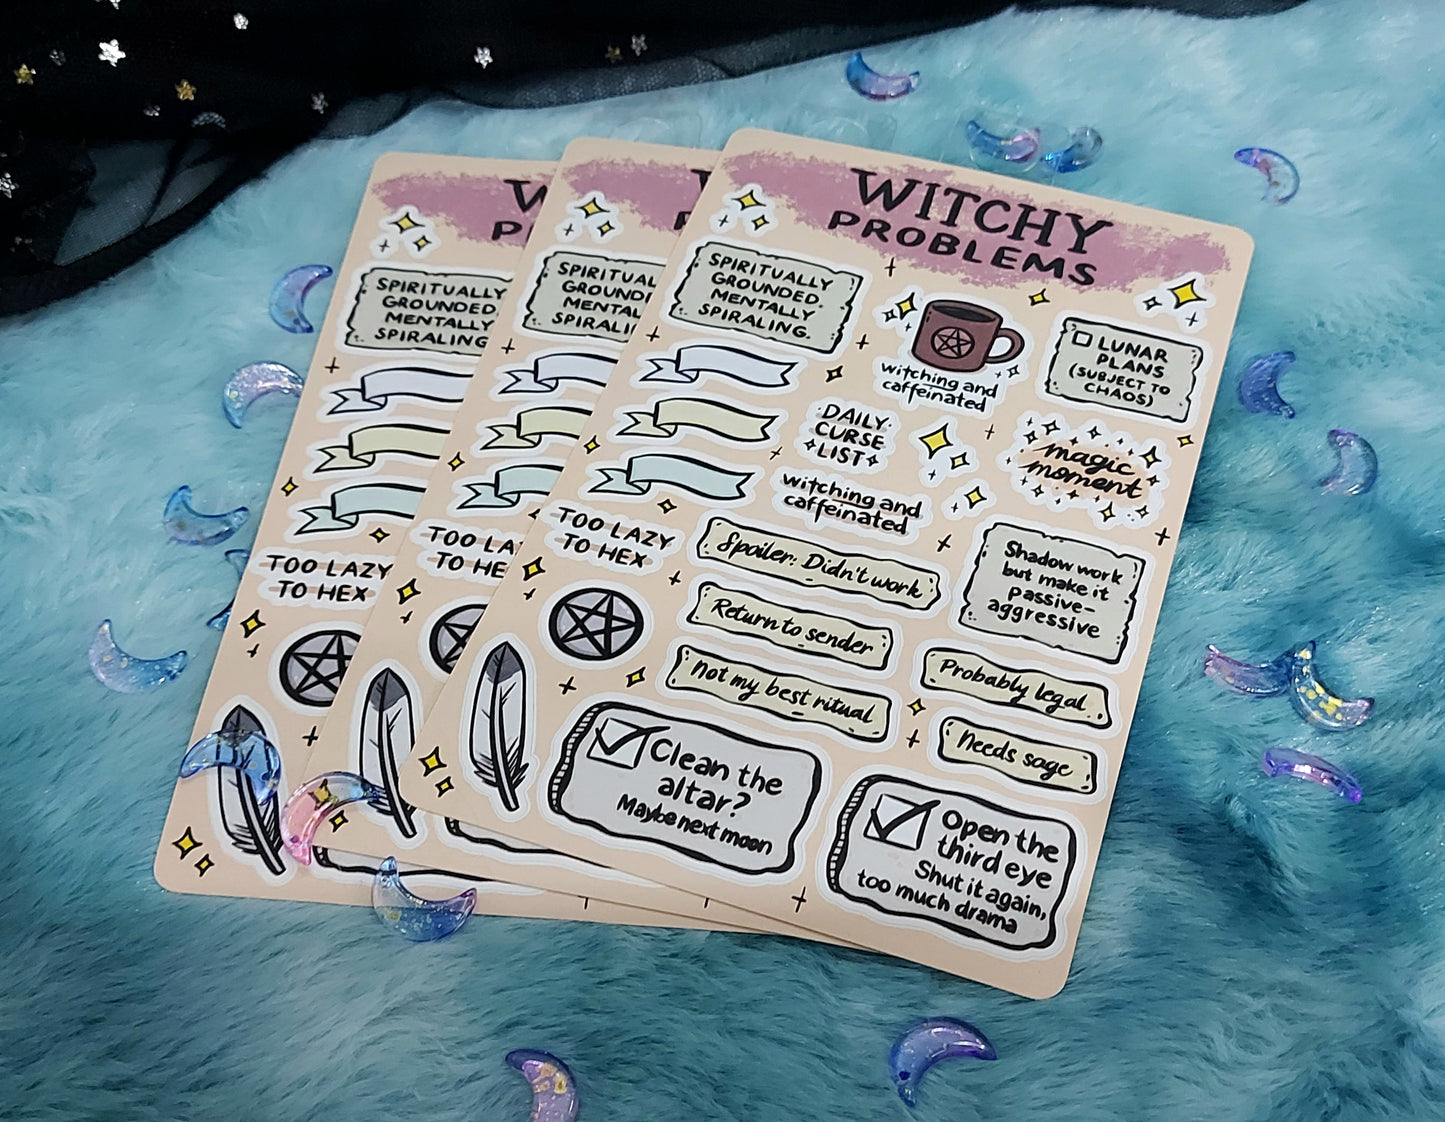 WITCHY
PROBLEMS
SPIRITUALLY
GROUNDED.
MENTALLY
SPIRALING.
witching and
caffeinated
LUNAR
PLANS
(SUBJECT TO
CHAOS)
DAILY
CURSE
LIST
magic
moment
witching and
caffeinated
TOO LAZY
TO HEX
Spoiler: Didn't work
Return to sender
Not my best ritual
Shadow work
but make it
passive-
aggressive
Probably legal
Needs sage
Clean the
altar?
Maybe next moon
Open the
third eye
Shut it again,
too much drama
W
P
SPIRITUAL
GROUND
MENTAL
SPIRALIN
TOO LA
TO HE
W
P
SPIRITUALLY
GROUNDED.
MENTALLY
SPIRALING
TOO LAZY
TO HEX